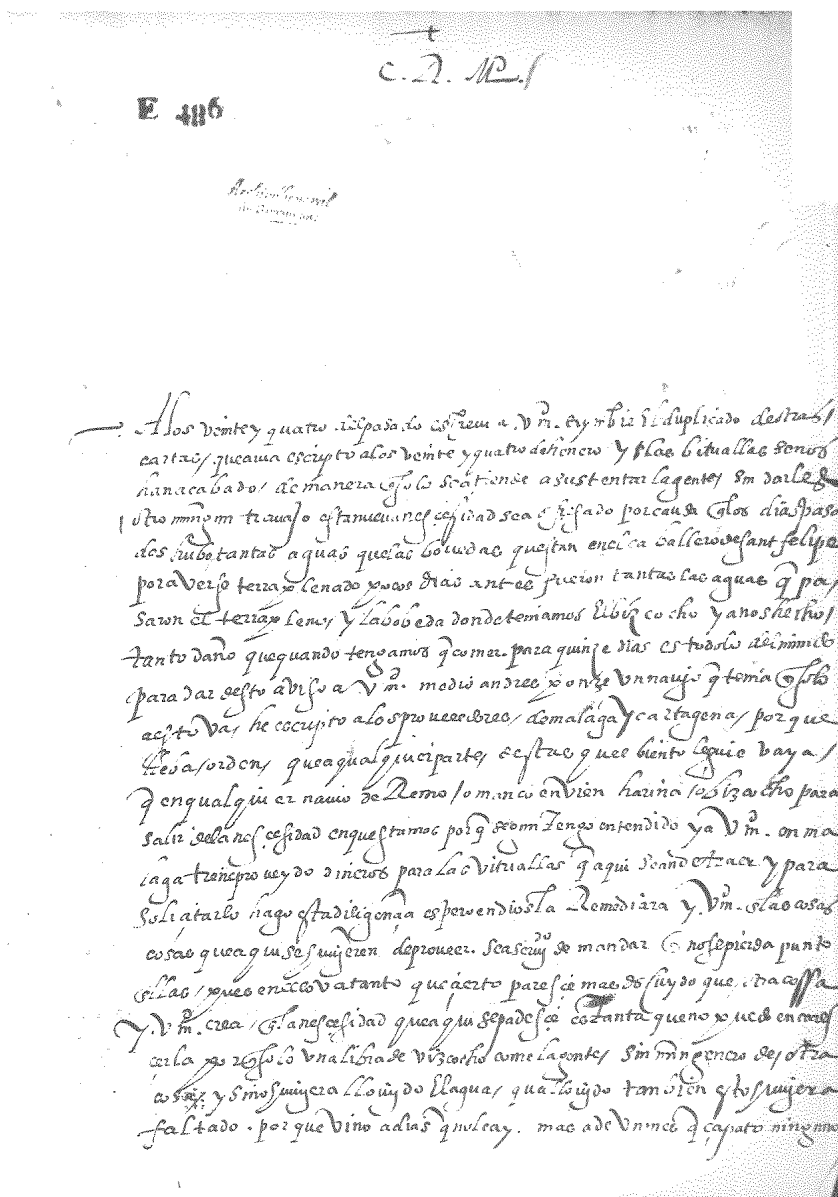 C. R. M.
E 486
Archivo General
de Simancas
A los veinte y quatro del pasado escrevi a V. M. y embie El duplicado de otras
cartas, que avia escripto a los veinte y quatro de henero y las bituallas se nos
han acabado, de manera q solo se atiende a sustentar la gente, sin darles
otro ningun travajo esta nueva nescesidad sea causado por causa q los dias pasa
dos hubo tantas aguas que las bovedas questan en el caballero de sant felipe
por averse terraplenado pocos dias antes fueron tantas las aguas q pa
saron el terrapleno, y la bobeda donde teniamos El bizcocho y a nos hecho,
tanto daño que quando tengamos q comer para quinze dias es todo lo del mundo
para dar desto aviso a V. M. me dio andrea ponze un navio q tenia q solo
a esto va, he escripto a los proveedores, de malaga y cartagena, por que
lleba, orden, que a qualquier parte, destas que el biento le guie vaya,
q en qualquier navio de Remo, o manco envien harina, o bizcocho para
salir de la nescesidad en questamos por q segun Tengo entendido ya V. M. en ma
laga tiene proveydo dineros para las vituallas q aqui se an de traer y para
solicitarlo hago esta diligencia espero en dios la Remediara y V. M. las cosas
cosas que aqui se huvieren de proveer. sea servido de mandar q no se pierda punto
ellas, pues en ello va tanto que cierto paresce mas descuydo que otra cossa
y V. M. crea, q la nescesidad que aqui se padesce es tanta que no puede encares
cerla por q solo una libra de vizcocho come la gente, sin ningun genero de otra
cosa, y si no huviera llovido El agua, qua llovido tambien esto huviera
faltado. por que vino a dias q no la ay. mas a de un mes q çapato ninguno